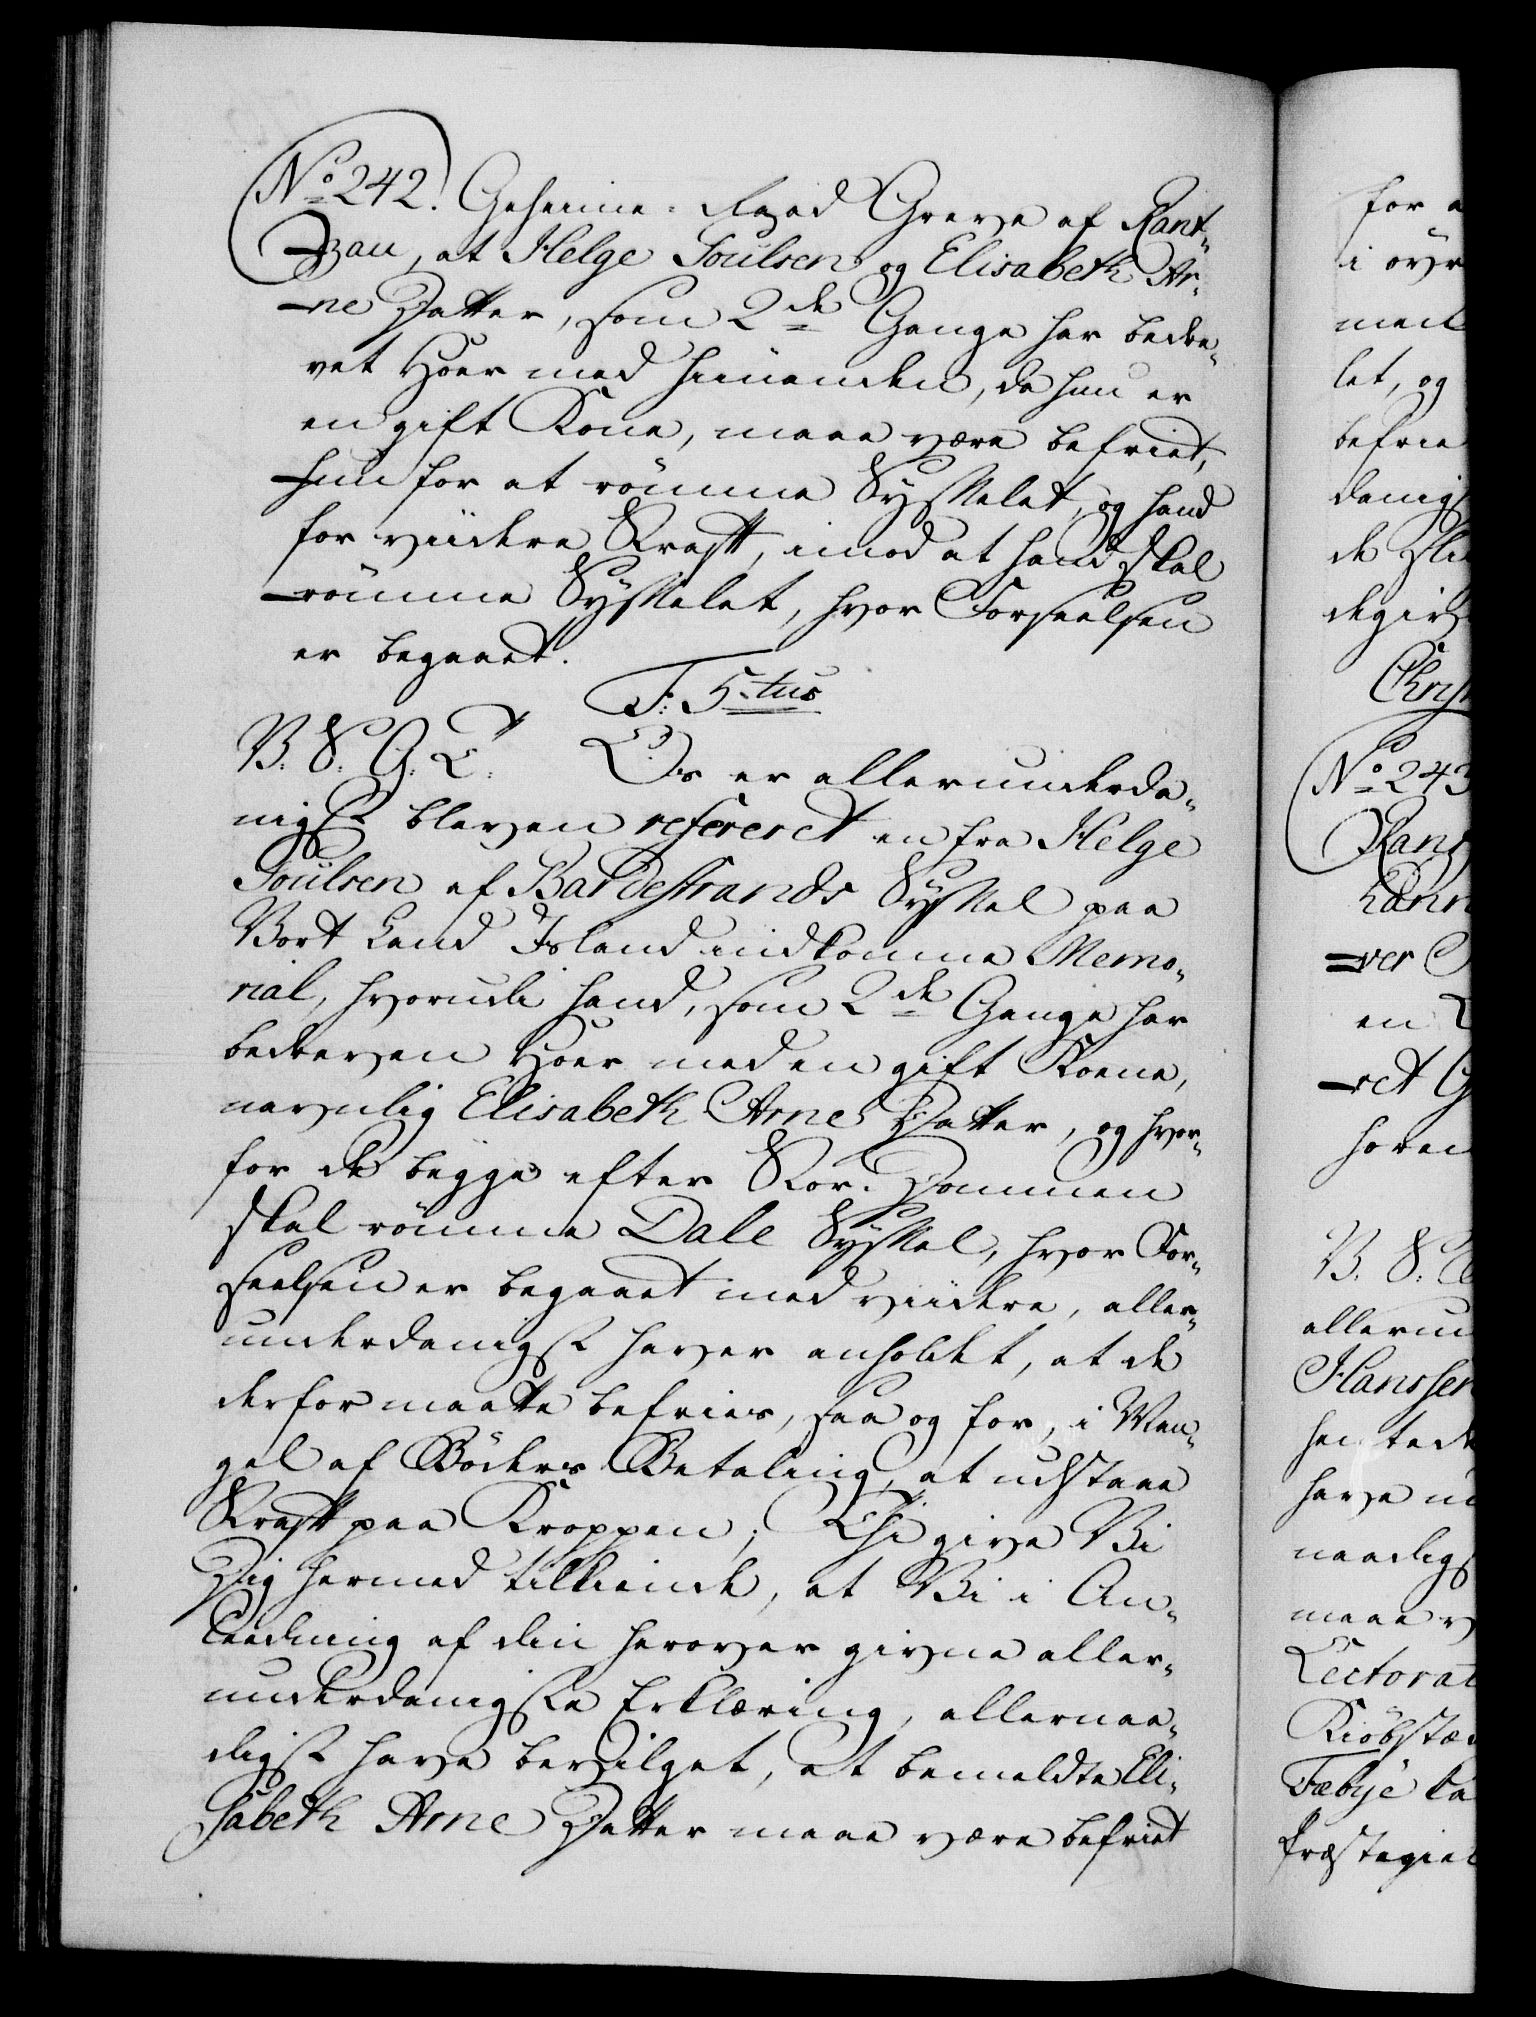 No 242. Geheime-Raad Greve af Rant-
zau, at Helge Poulsen og Elisabeth Ar-
ne Datter, som 2de Gange har bedre-
vet Hoer med hinanden, da hun er
en gift Kone, maae være befriet,
hun for at römme Sysselet, og hand
for viidere Straff, imod at hand skal
römme Sysselet, hvor Forseelsen
er begaaet.
F: 5.tus
V. S. G. T. Os er allerunderda-
nigst bleven refereret en fra Helge
Poulsen af Bardestrands Syssel paa
Vort Land Island indkomme Memo-
rial, hvorudi hand, som 2de Gange har
bedreven Hoer med en gift Koene,
navnlig Elisabeth Arne Datter, og hvor-
for de begge efter Stor-Dommen
skal römme Dale Syssel, hvor For-
seelsen er begaaet med viidere, aller-
underdanigst haver anholdet, at de
derfor maatte befries, saa og for, i Man-
gel af Böders Betaling, at udstaae
Straff paa Kroppen; Thi give Vi
Dig hermed tilkiende, at Vi i An-
ledning af din herover givne aller-
underdanigste Erklæring, allernaa-
digst have bevilget, at bemeldte Eli-
sabeth Arne Datter maae være befriet
for a
i övr
med
let, og
befrie
danigs
de
Christ
No 243
Rantz
ver
en
ret G
horen
V. S.
allerun
Hanssen
have
naadigs
maae v
Lectorat
Kiöbstæd
Præstegiel